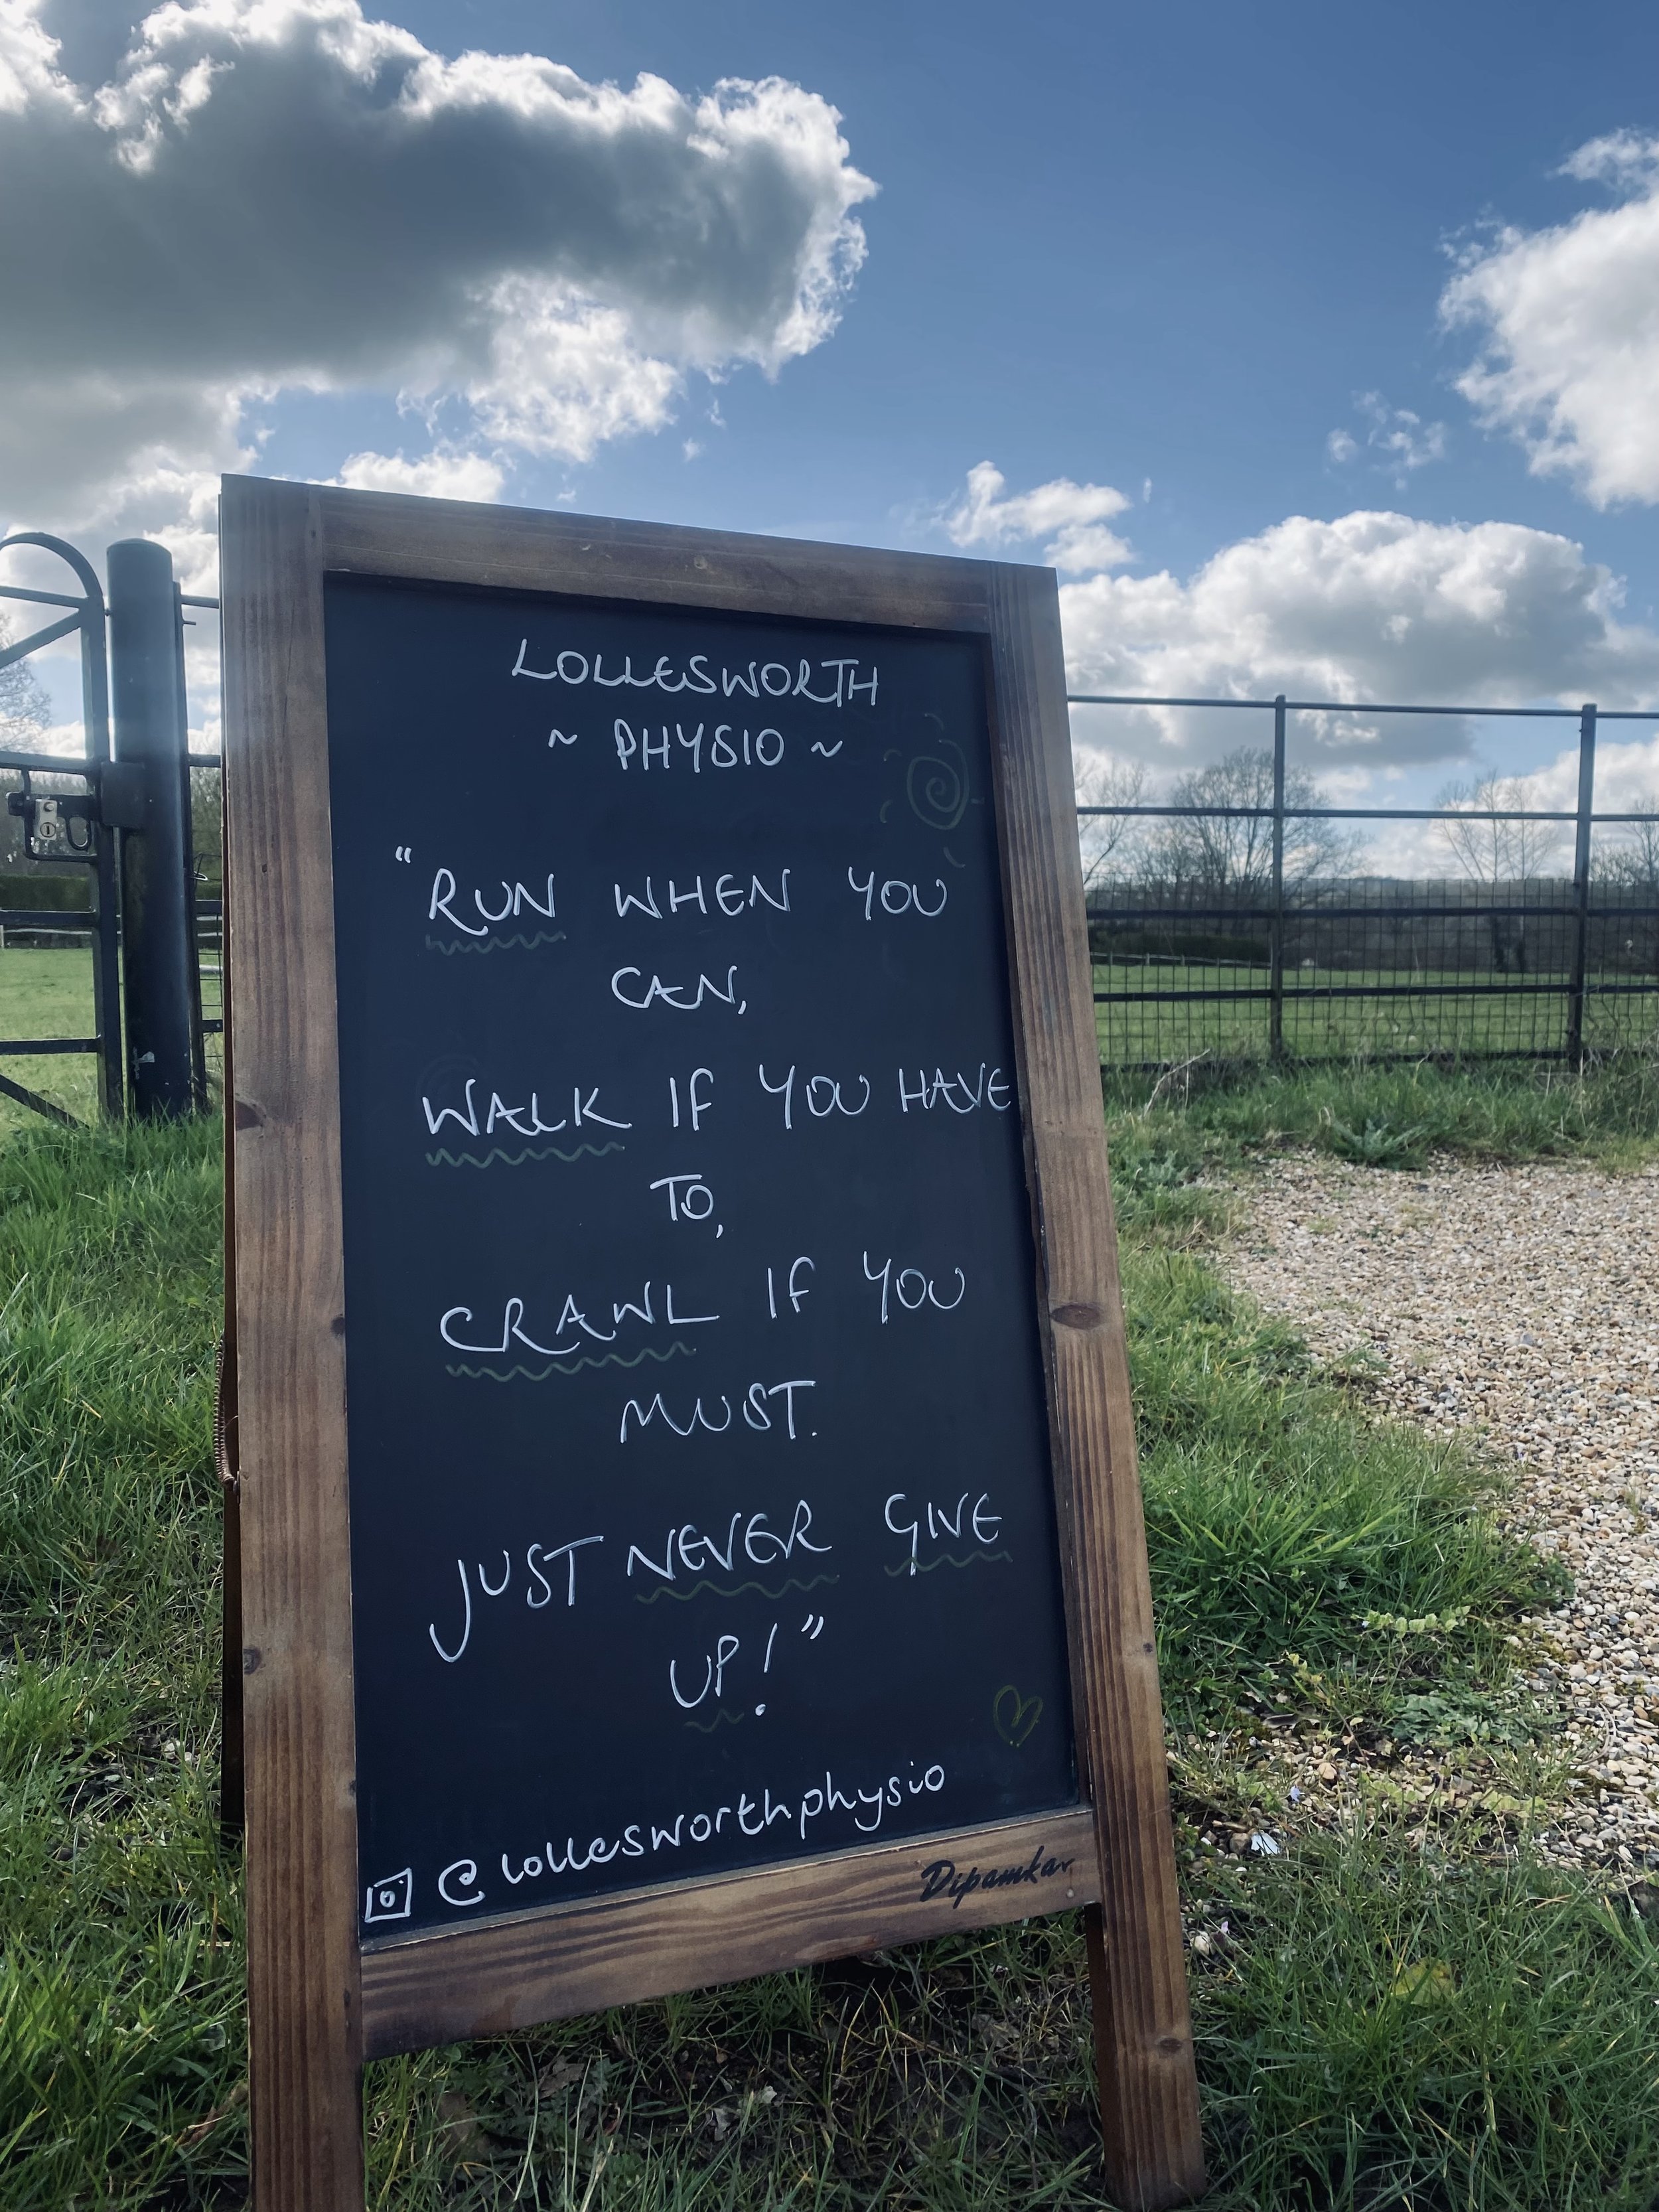 LOLLESWORTH
~ PHYSIO ~
"RUN WHEN YOU
CAN,
WALK IF YOU HAVE
TO,
CRAWL IF YOU
MUST.
JUST NEVER GIVE
UP!"
@lollesworthphysio
Dipamkar